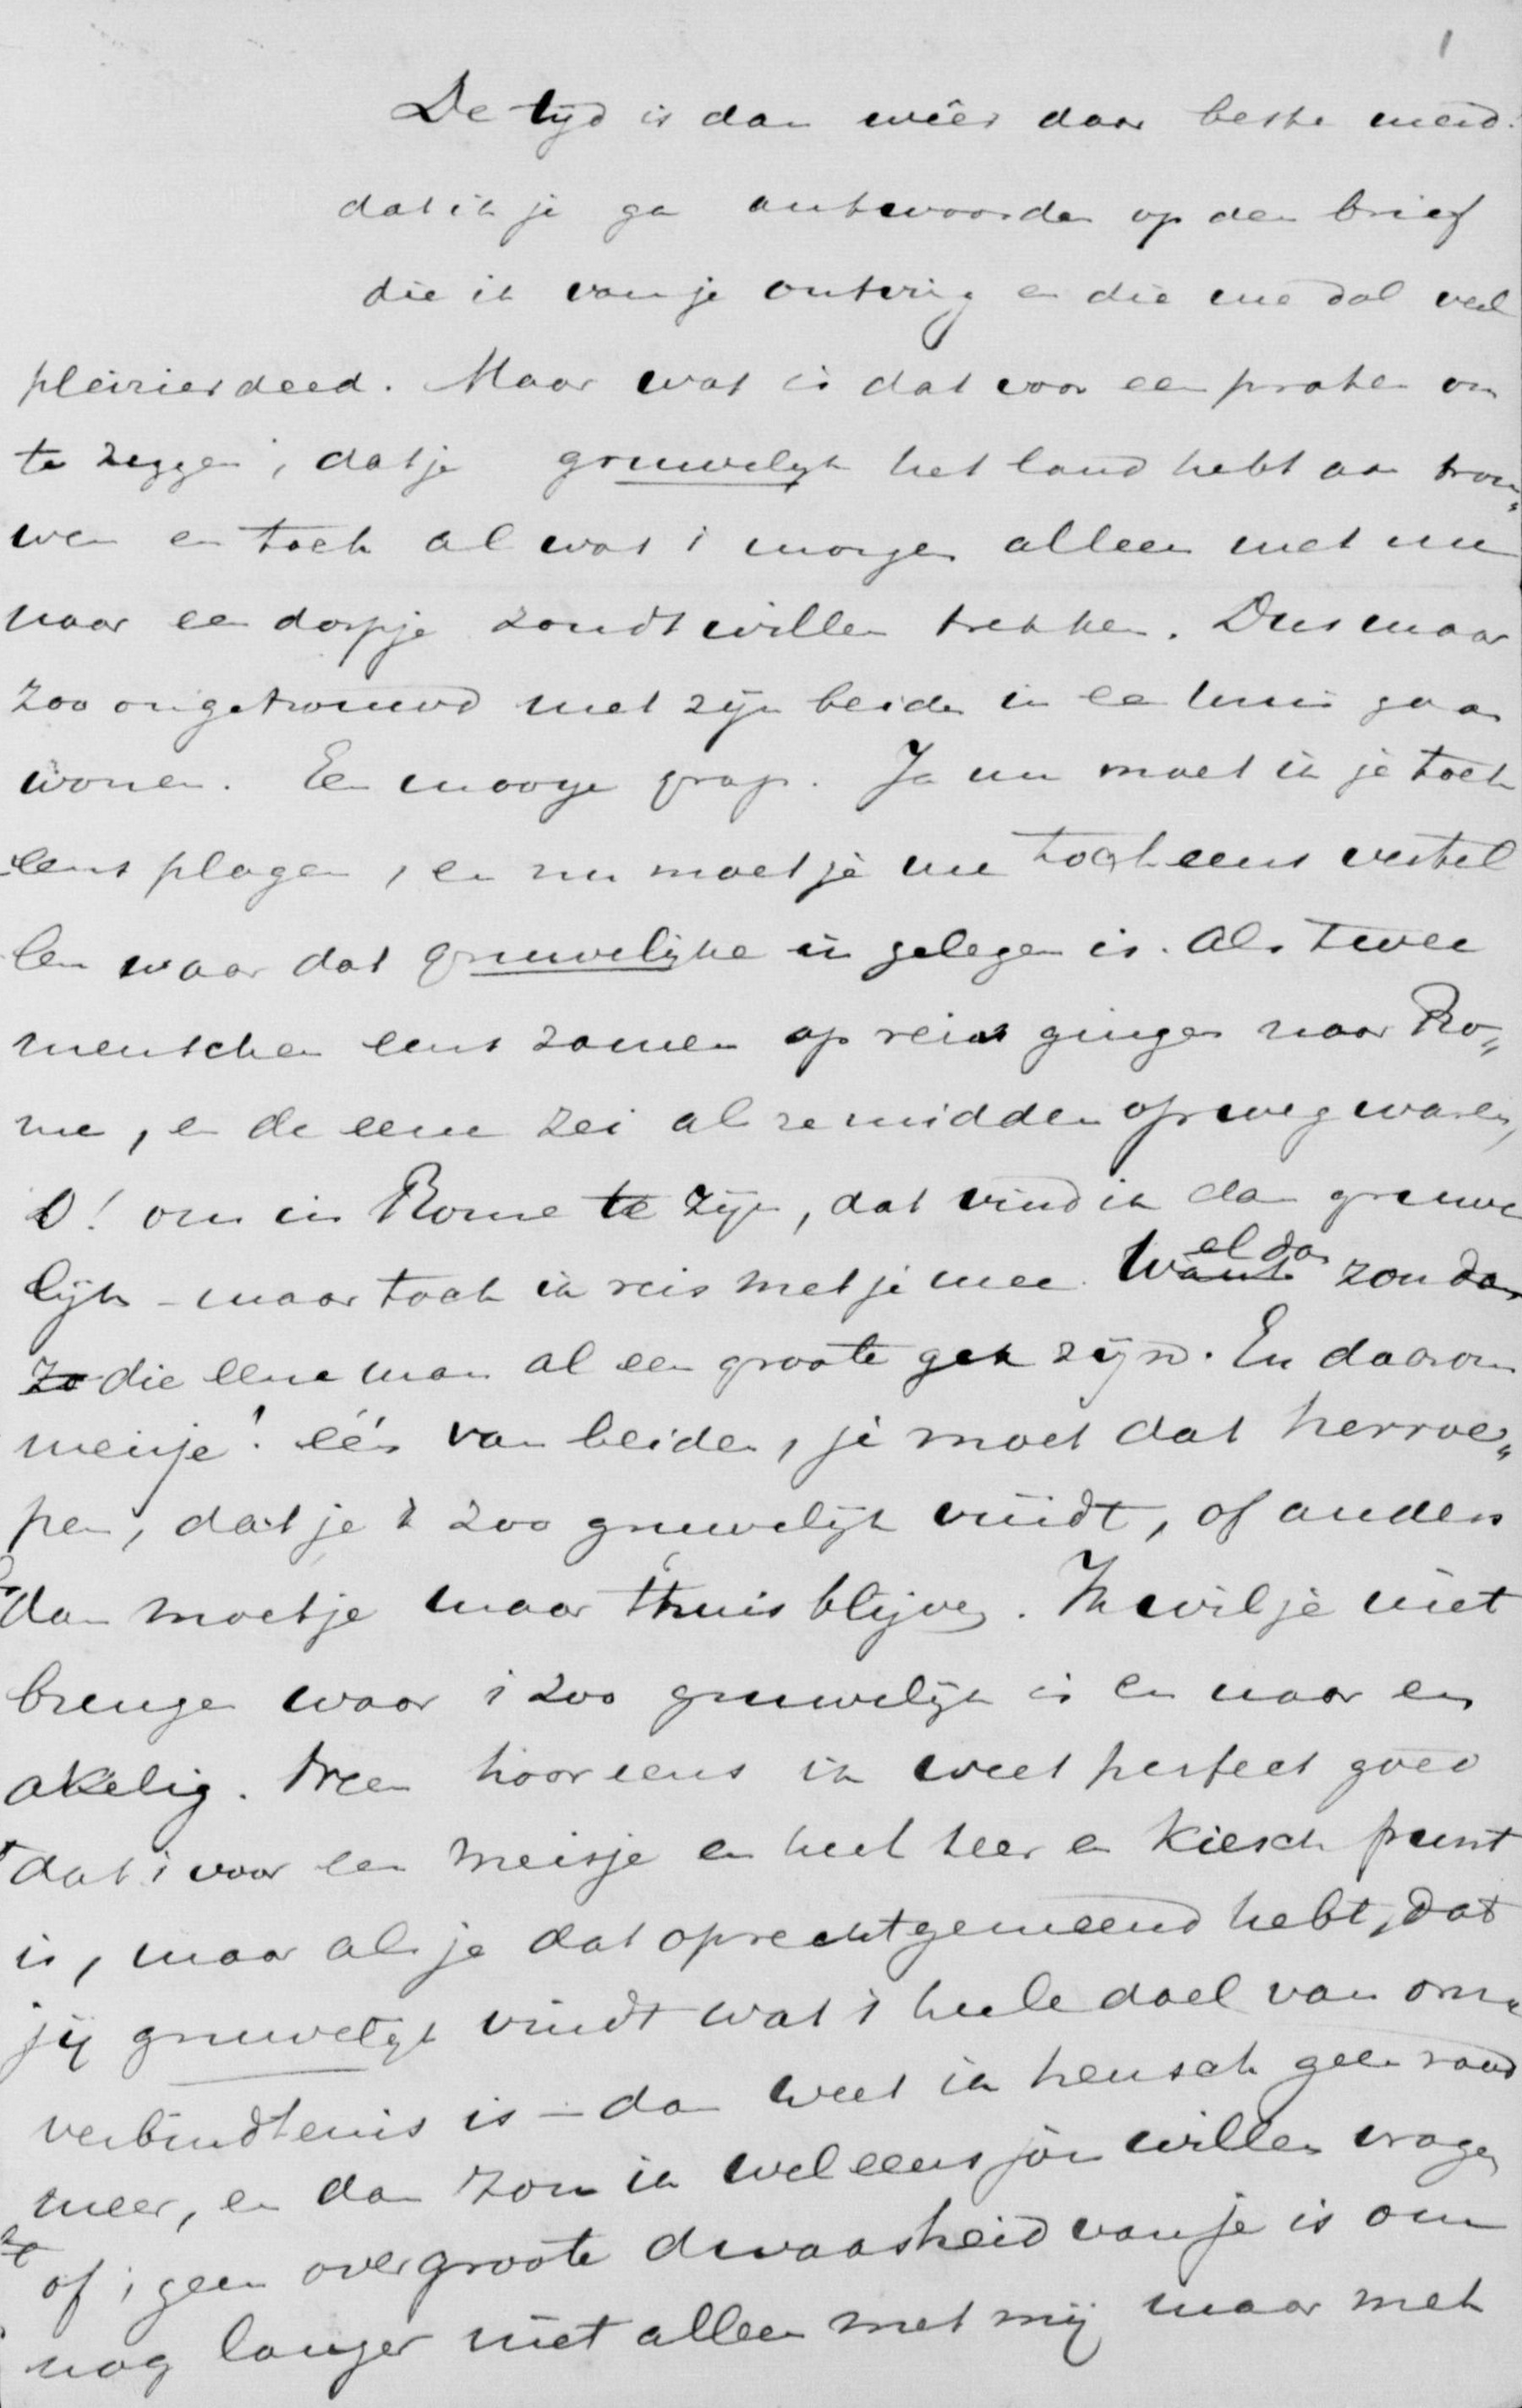 1
De tijd is dan wêer daar beste meid!
dat ik je ga antwoorden op den brief
die ik van je ontving en die me dol veel
pleizier deed. Maar wat is dat voor een praten om
te zeggen, dat je gruwelijk het land hebt aan trou„
wen en toch al was 't morgen alleen met me
naar een dorpje zoudt willen trekken. Dus maar
zoo ongetrouwd met zijn beiden in een huis gaan
wonen. Een mooye grap. Ja nu moet ik je toch
eens plagen, en nu moet je me toch eens vertel
len waar dat gruwelijke in gelegen is. Als twee
menschen eens zamen op reis gingen naar Ro„
me, en de eene zei als ze midden op weg waren,
O! om in Rome te zijn, dat vind ik dan gruwe
lijk – maar toch ik reis met je mee. Wel dan zou dan
zo die eene man al een groote gek zijn. En daarom
meisje! één van beiden, je moet dat herroe„
pen, dat je 't zoo gruwelijk vindt, of anders
dan moet je maar t'huis blijven. Ik wil je niet
brengen waar 't zoo gruwelijk is en naar en
akelig. Neen hoor eens ik weet perfect goed
dat 't voor een meisje een heel teer en kiesch punt
is, maar als je dat oprecht gemeend hebt, dat
jij gruwelijk vindt wat 't heele doel van onze
verbindtenis is – dan weet ik heusch geen raad
meer, en dan zou ik wel eens jou willen vragen
of 't geen overgroote dwaasheid van je is om
nog langer niet alleen met mij maar met